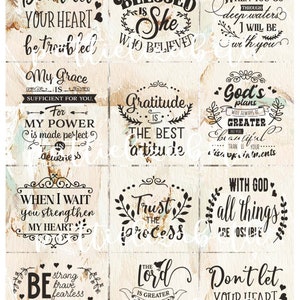 YOUR HEART
be troubled
BLESSED
IS
She
WHO BELIEVED
THROUGH
deep waters
I WILL BE
with you
My Grace
IS
SUFFICIENT FOR YOU,
For
MY POWER
is made perfect
in
weakness
Gratitude
IS
THE BEST
attitude
God's
plans
WILL ALWAYS BE
GREATER
& MORE
beautiful
THAN ALL YOUR
disappointments
WHEN I WAIT
you strengthen
MY HEART
Trust
the
process
WITH GOD
all things
ARE POSSIBLE
BE
strong
brave
fearless
The
Lord
IS GREATER
Don't let
YOUR HEART